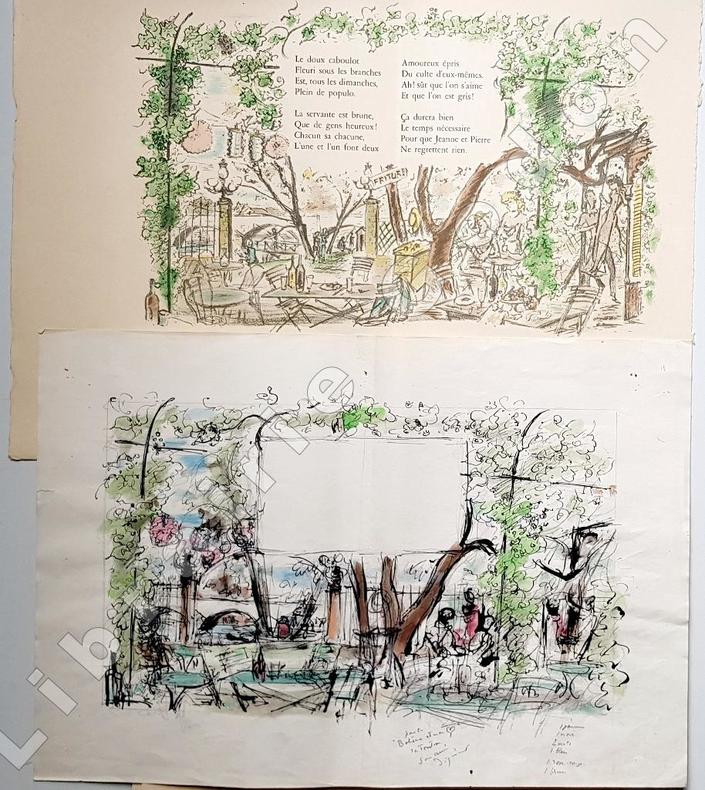 Le doux caboulot
Fleuri sous les branches
Est, tous les dimanches,
Plein de populo.
La servante est brune,
Que de gens heureux!
Chacun sa chacune,
L'une et l'un font deux
Amoureux épris
Du culte d'eux-mêmes.
Ah! sûr que l'on s'aime
Et que l'on est gris!
Ça durera bien
Le temps nécessaire
Pour que Jeanne et Pierre
Ne regrettent rien.
FRITURE